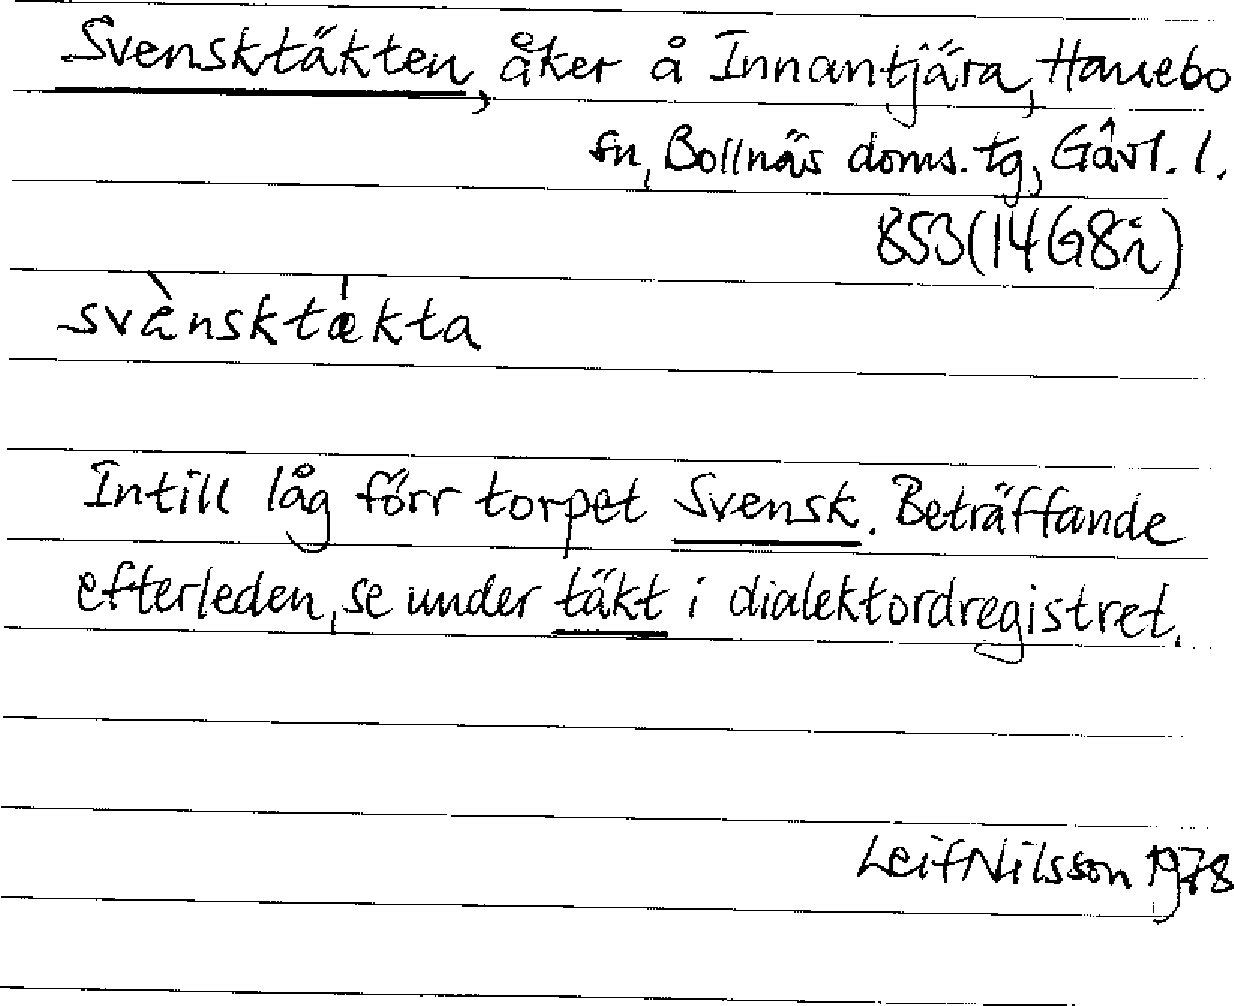 Svensktäkten, åker å Innantjära, Hanebo
sn, Bollnäs doms. tg, Gävl. l.
853(14G8i)
svὰnsktækta
Intill låg förr torpet Svensk. Beträffande
efterleden, se under täkt i dialektordregistret.
Leif Nilsson 1978